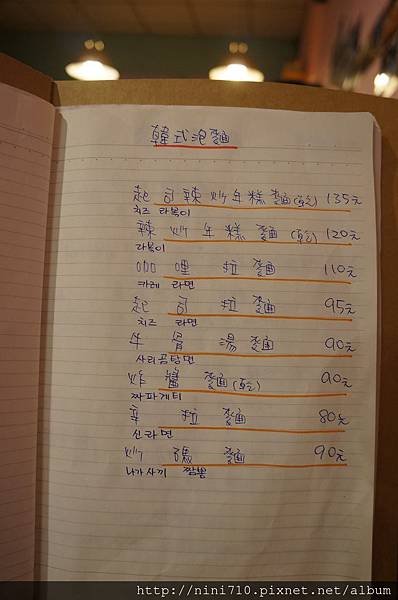 韓式泡麵
起司辣炒年糕麵(乾) 135元
치즈 라볶이
辣炒年糕麵(乾) 120元
라볶이
咖哩拉麵 110元
카레 라면
起司拉麵 95元
치즈 라면
牛骨湯麵 90元
사리곰탕면
炸醬麵(乾) 90元
짜파게티
辛拉麵 80元
신라면
炒碼麵 90元
나가사끼 짬뽕
http://nini710.pixnet.net/album